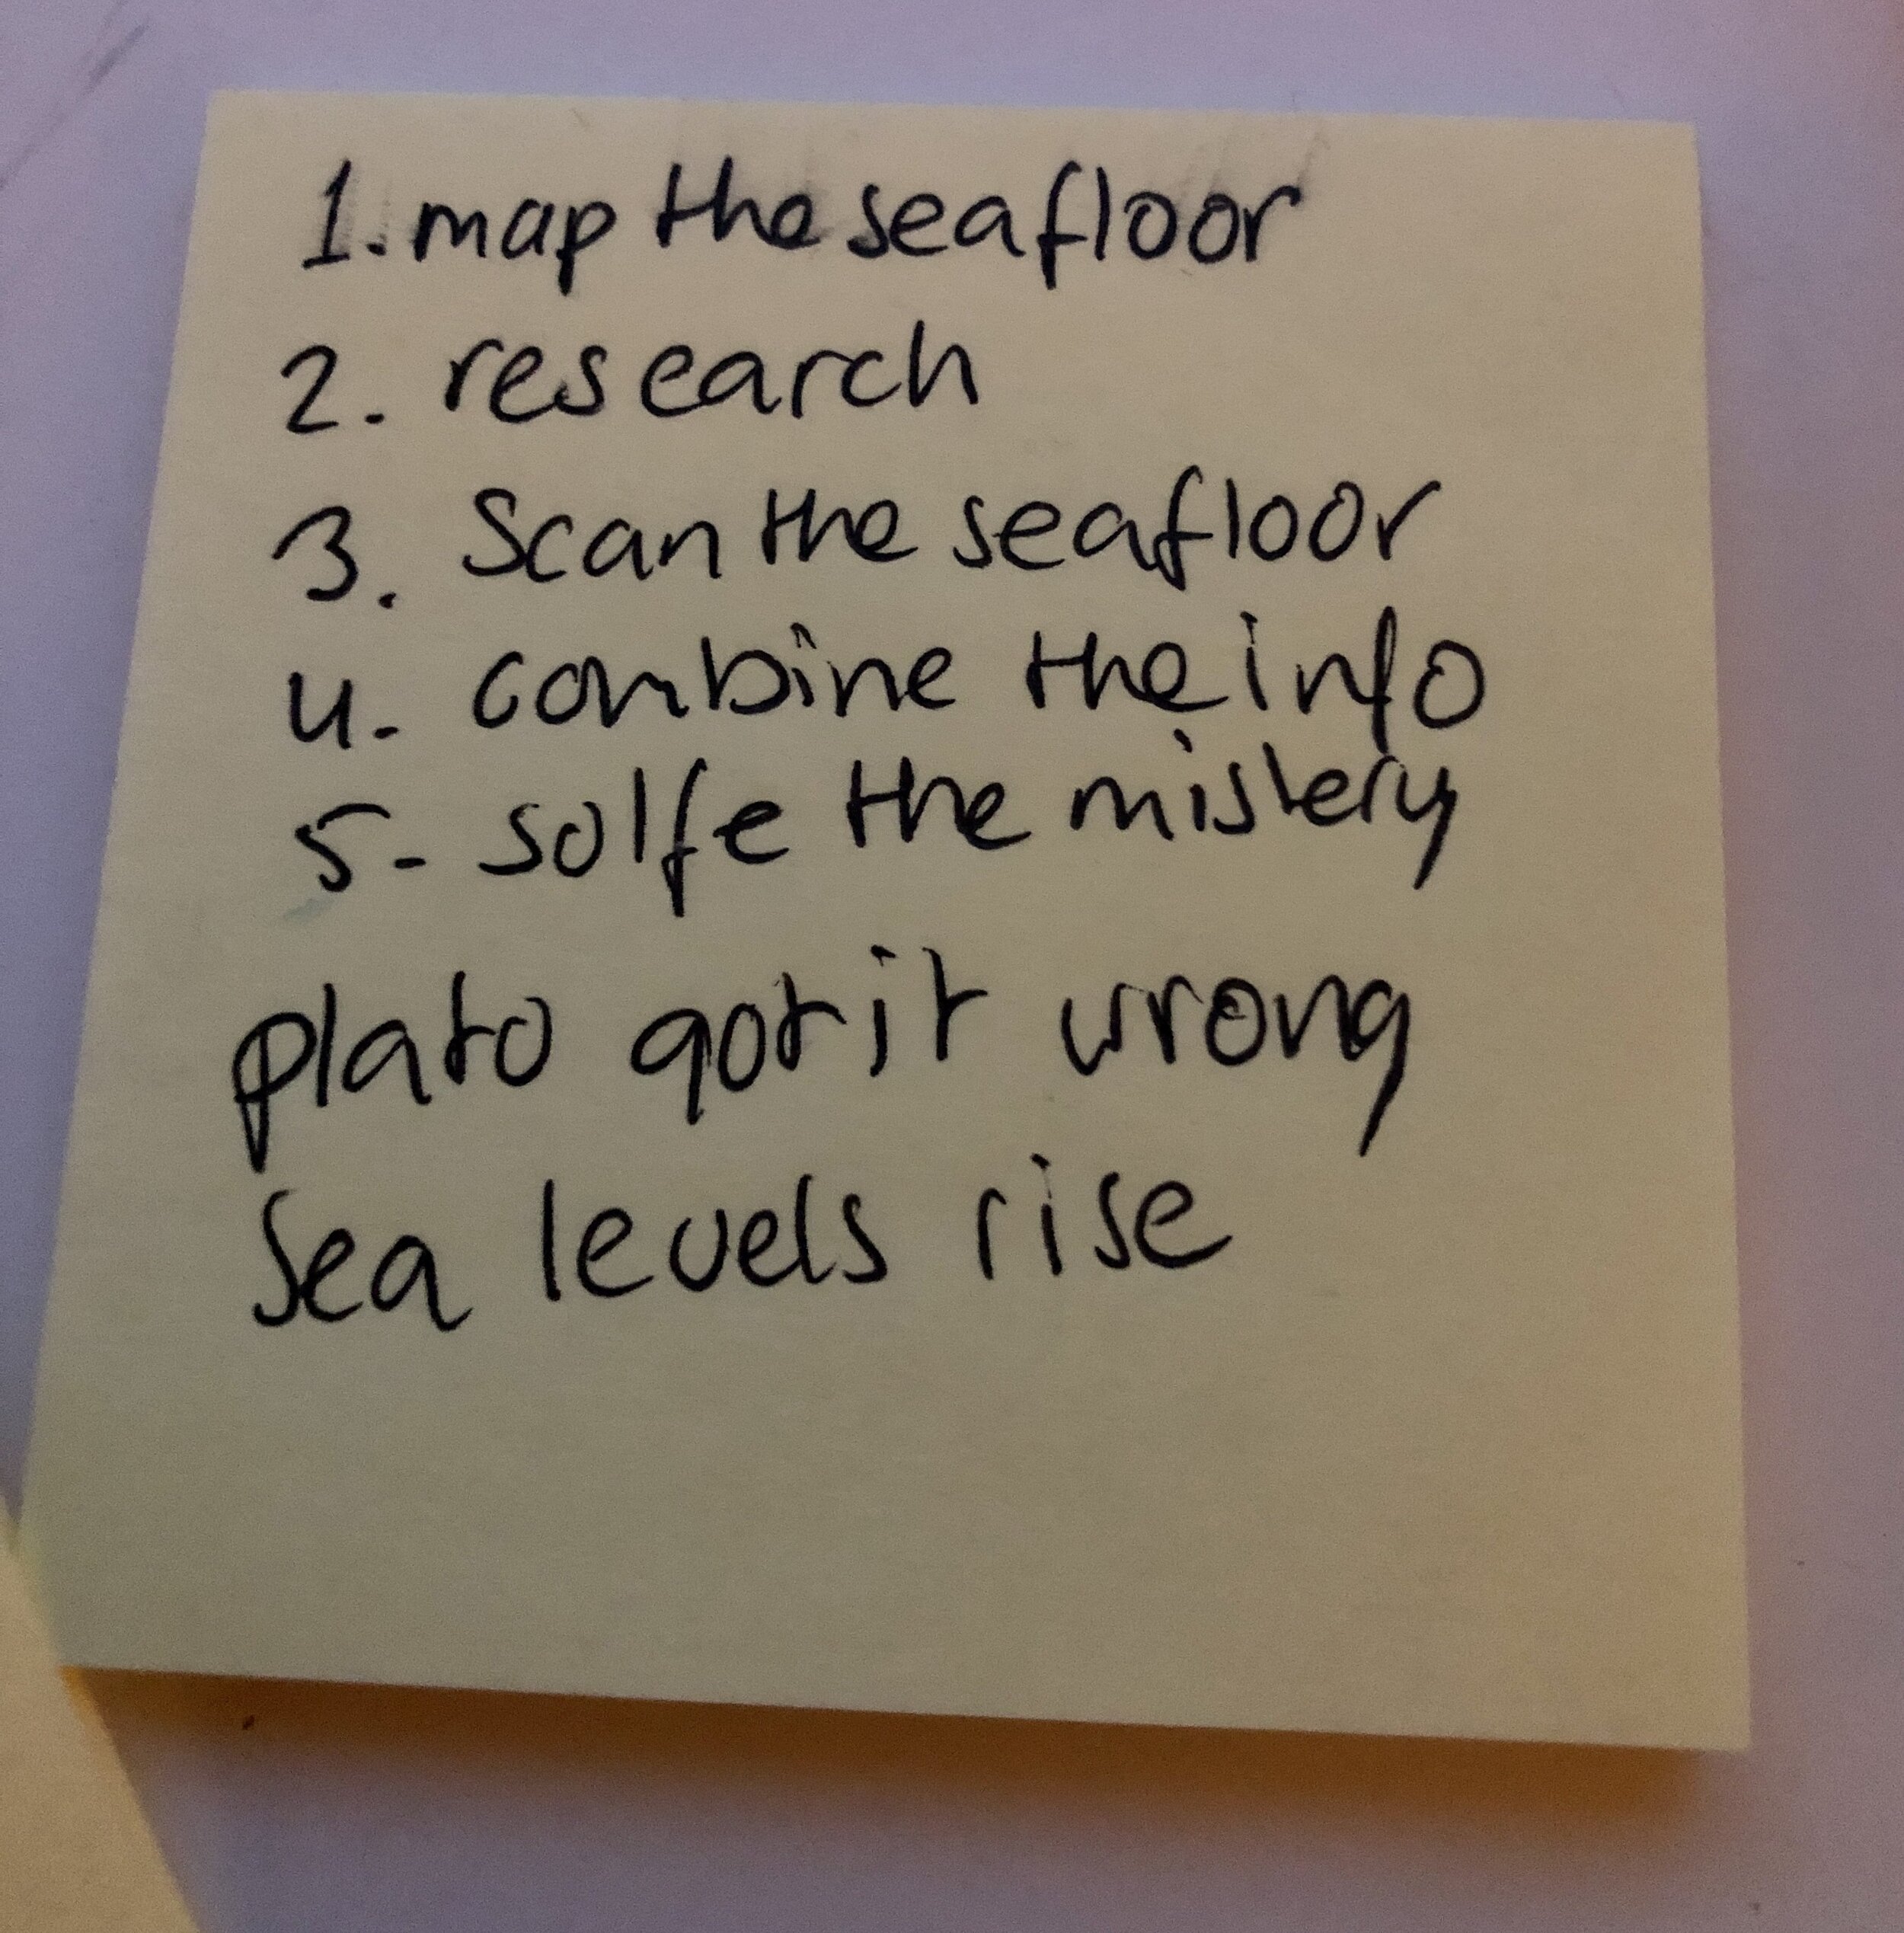 1. map the seafloor
2. research
3. Scan the seafloor
4. combine the info
5- solfe the mistery
plato got it wrong
Sea levels rise